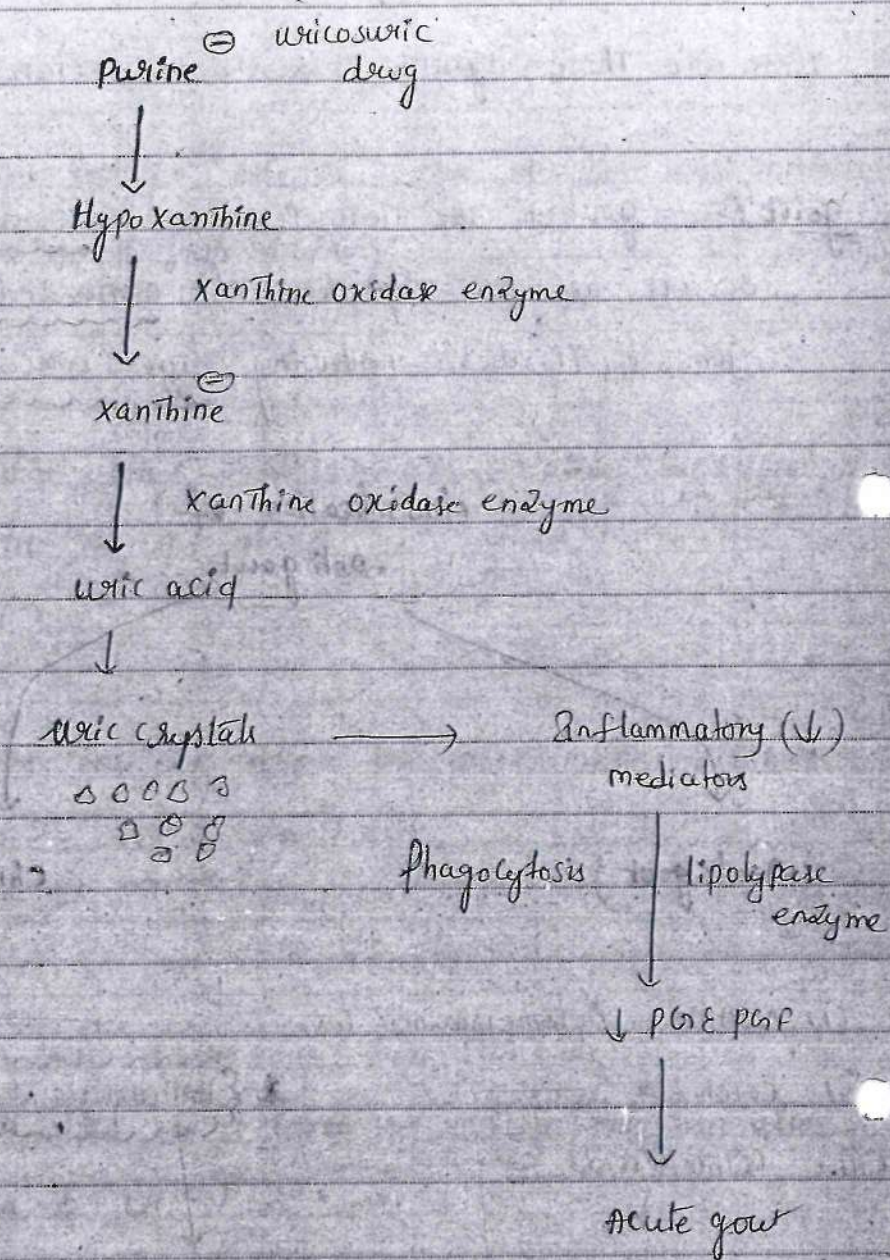 ⊖ uricosuric
Purine drug
↓
Hypoxanthine
↓ xanthine oxidase enzyme
⊖
xanthine
↓ xanthine oxidase enzyme
uric acid
↓
uric crystals → Inflammatory (↓)
mediators
Phagocytosis ↓ lipolypase
enzyme
↓ PGE PGF
↓
Acute gout